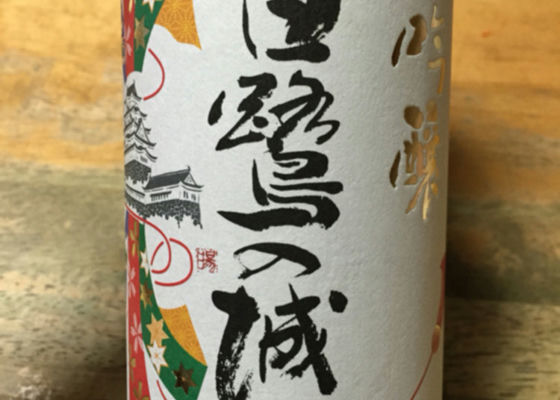 吟醸
白鷺の城